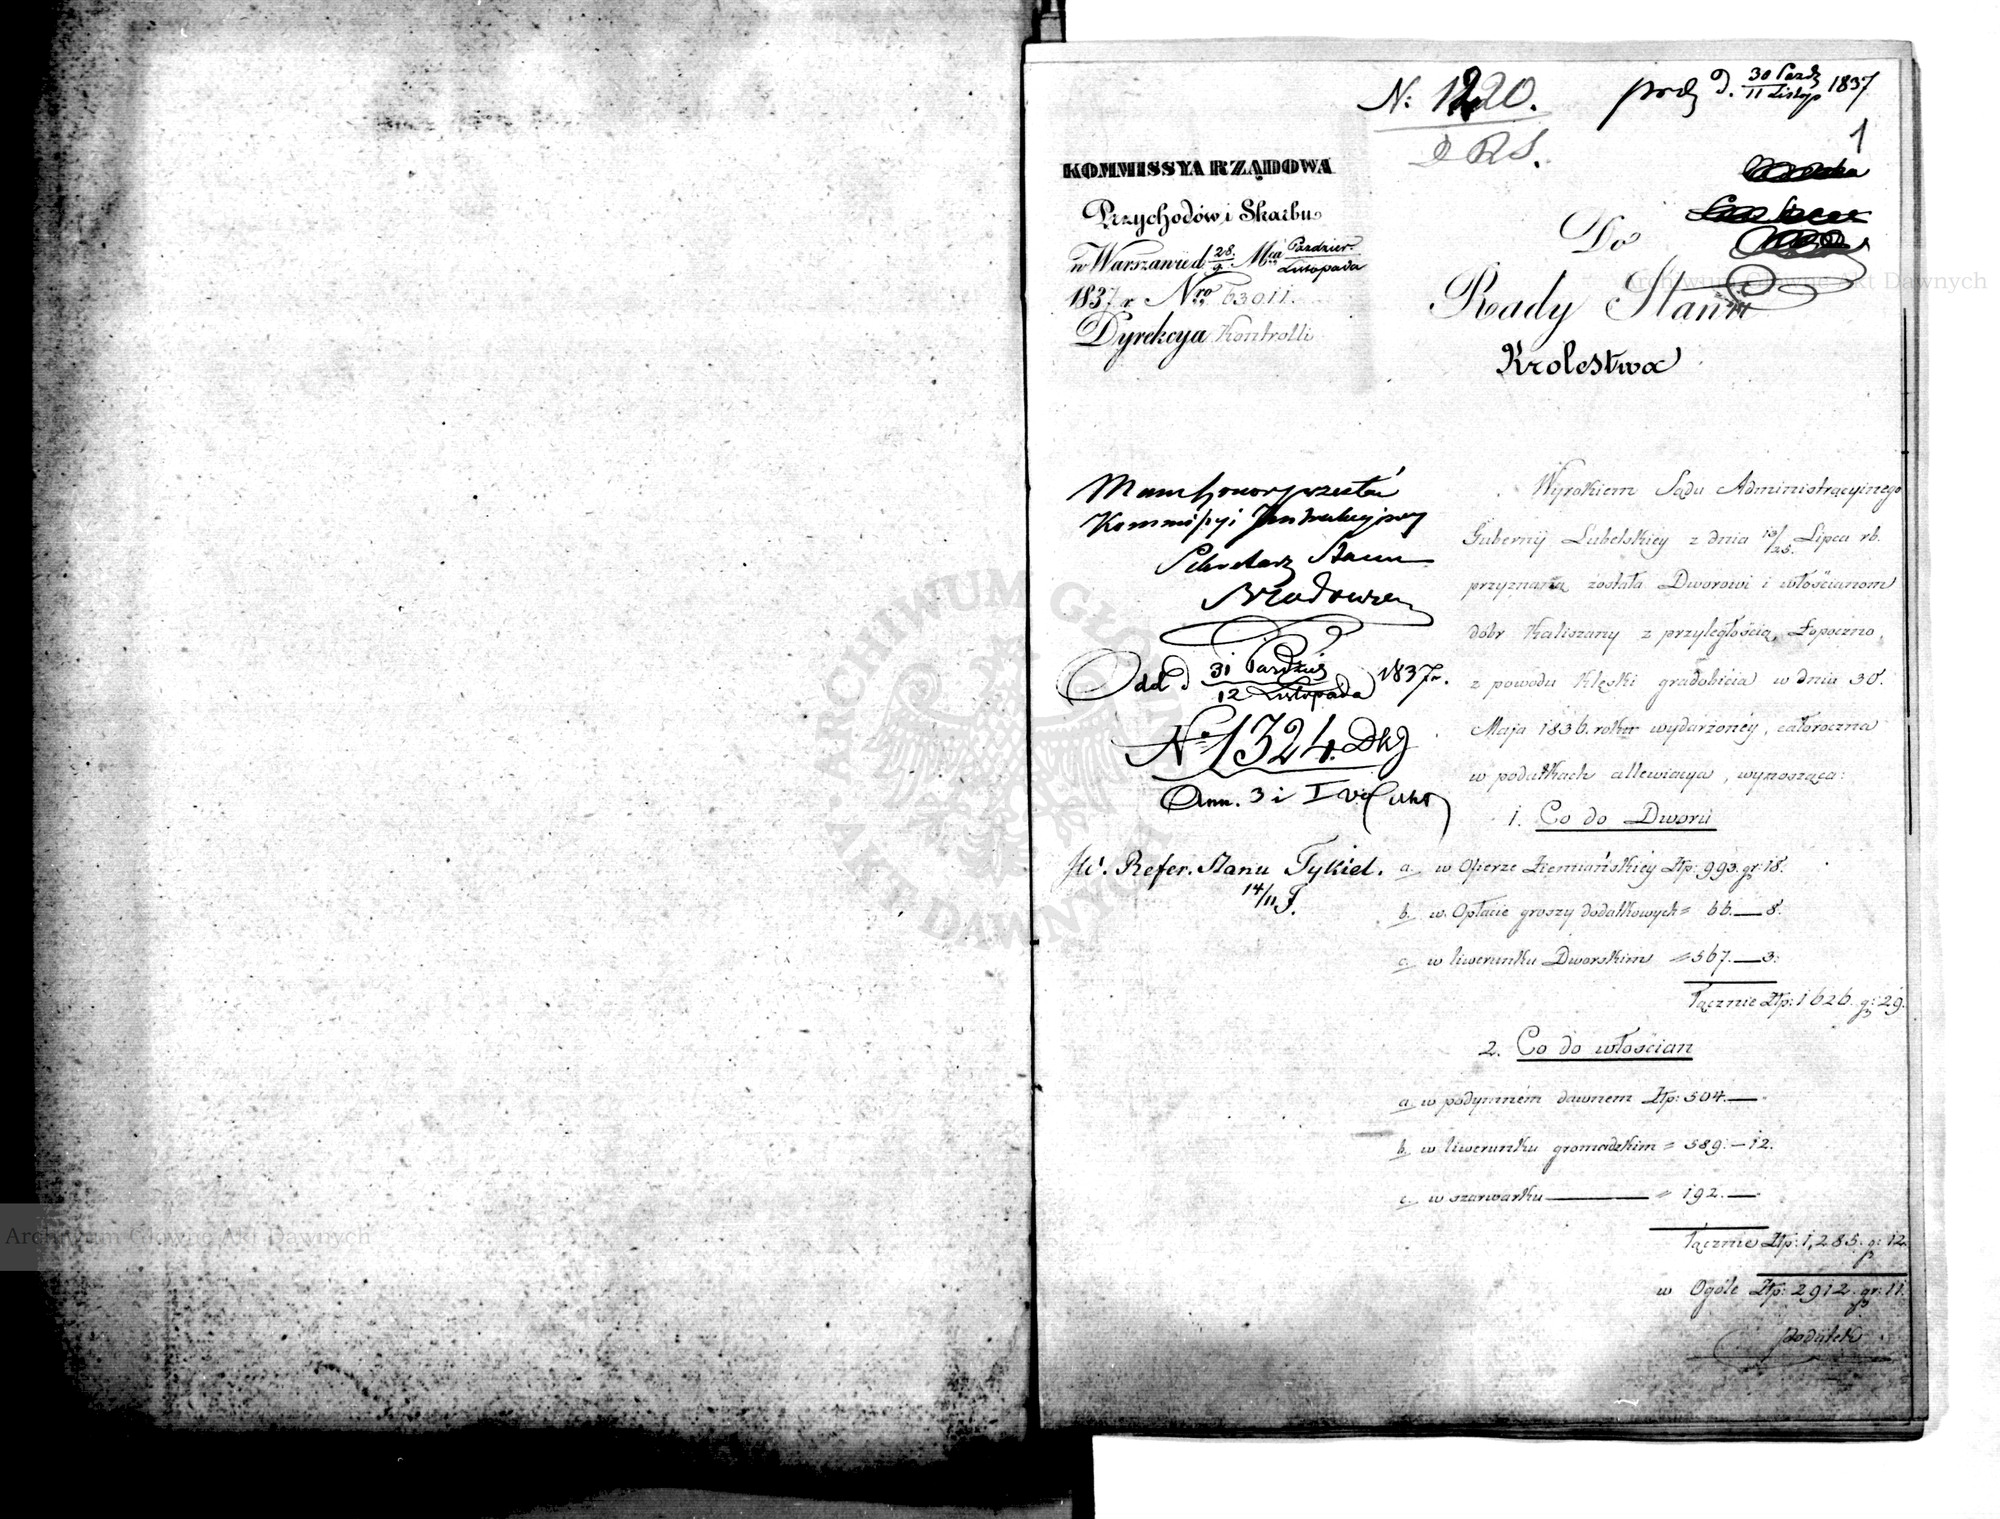 N: 1220.
D R S.
prod D. 30 Paźdz / 11 Listop 1837
1
KOMMISSYA RZĄDOWA
Przychodów i Skarbu
w Warszawie d 28. / 9. Mca Paździer. / Listopada
1837 r Nro 63011.
Dyrekcya Kontrolli
Do
Rady Stanu
Krolestwa
Mam honor przesłać
Kommissyi Instrukcyjney
Sekretarz Stanu
Odd d 31 Paździer / 12 Listopada 1837 r.
No 1324. DkJ
Ann. 3 i I
JW. Refer. Stanu Tykiel.
14/11 J.
Wyrokiem Sądu Administracyinego
Gubernij Lubelskiey z dnia 13/25. Lipca rb.
przyznana została Dworowi i włościanom
dóbr Kaliszany z przyległością, Łopoczno,
z powodu Klęski gradobicia w dniu 30.
Maja 1836. roku wydarzoney, całoroczna
w podatkach allewiacya, wynosząca:
1. Co do Dworu
a. w Ofierze Ziemiańskiey Złp: 993. gr: 18.
b. w Opłacie groszy dodatkowych = 66. — 8.
c. w liwerunku Dworskim = 567. — 3.
Łącznie Złp: 1626. gr: 29.
2. Co do włościan
a. w podymném dawnem Złp: 504. —
b. w liwerunku gromadzkim = 589. — 12.
c. w szarwarku — = 192. —
Łącznie Złp: 1,285. gr: 12.
w Ogóle Złp: 2912. gr: 11.
podatek
Archiwum Główne Akt Dawnych
Archiwum Główne Akt Dawnych
ARCHIWUM GŁÓWNE
AKT DAWNYCH